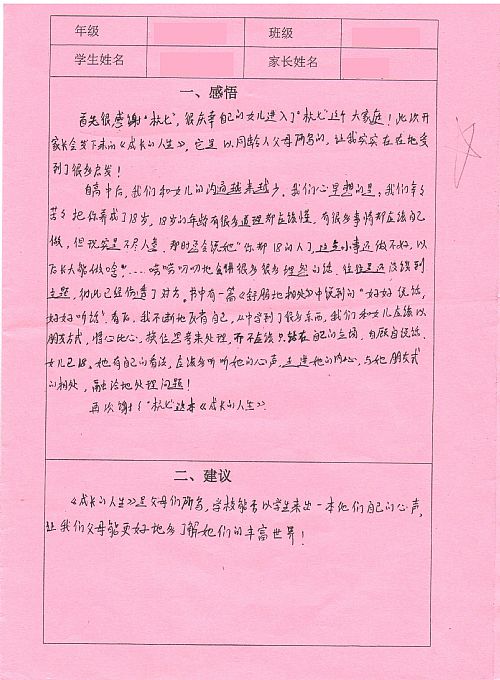 年级 班级
学生姓名 家长姓名
一、感悟
首先很感谢“杭七”，很庆幸自己的女儿进入了“杭七”这个大家庭！此次开
家长会发下来的《成长的人生》，它是以同龄人父母所写的，让我实实在在地受
到了很多启发！
自高中后，我们和女儿的沟通越来越少，我们心里想的是，我们辛辛
苦苦把你养成了18岁，18岁的年龄有很多道理却应该懂，有很多事情却应该自己
做，但现实是不尽人意，那时总会说她“你都18的人了，这点小事还做不好，以
后长大能做啥”…… 唠唠叨叨地会讲很多很多埋怨的话，往往是还没讲到
主题，彼此已经伤害了对方。书中有一篇《舒服地相处》中说到的“好好说话，
好好听话”有感，我不断地反省自己，从中学到了很多东西，我们和女儿应该以
朋友方式，将心比心，换位思考来处理，而不应该只站在自己的立场，自顾自说话，
女儿已18，她有自己的看法，应该多听听她的心声，走进她的内心，与她朋友式
的相处，融洽地处理问题！
再次谢谢“杭七”这本《成长的人生》
二、建议
《成长的人生》是父母们所写，学校能否以学生来出一本他们自己的心声，
让我们父母能更好地多了解她们的丰富世界！